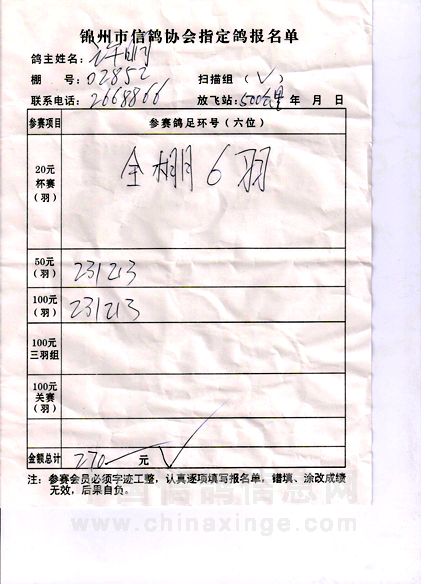 锦州市信鸽协会指定鸽报名单
鸽主姓名：许明
棚 号：02852 扫描组（√）
联系电话：2668866 放飞站：500公里 年 月 日
参赛项目 参赛鸽足环号（六位）
20元
杯赛
（羽）
全棚6羽
50元
（羽）
231213
100元
（羽）
231213
100元
三羽组
100元
关赛
（羽）
金额总计 270 元 √
注：参赛会员必须字迹工整，认真逐项填写报名单，错填、涂改成绩
无效，后果自负。
中国信鸽信息网
www.chinaxinge.com